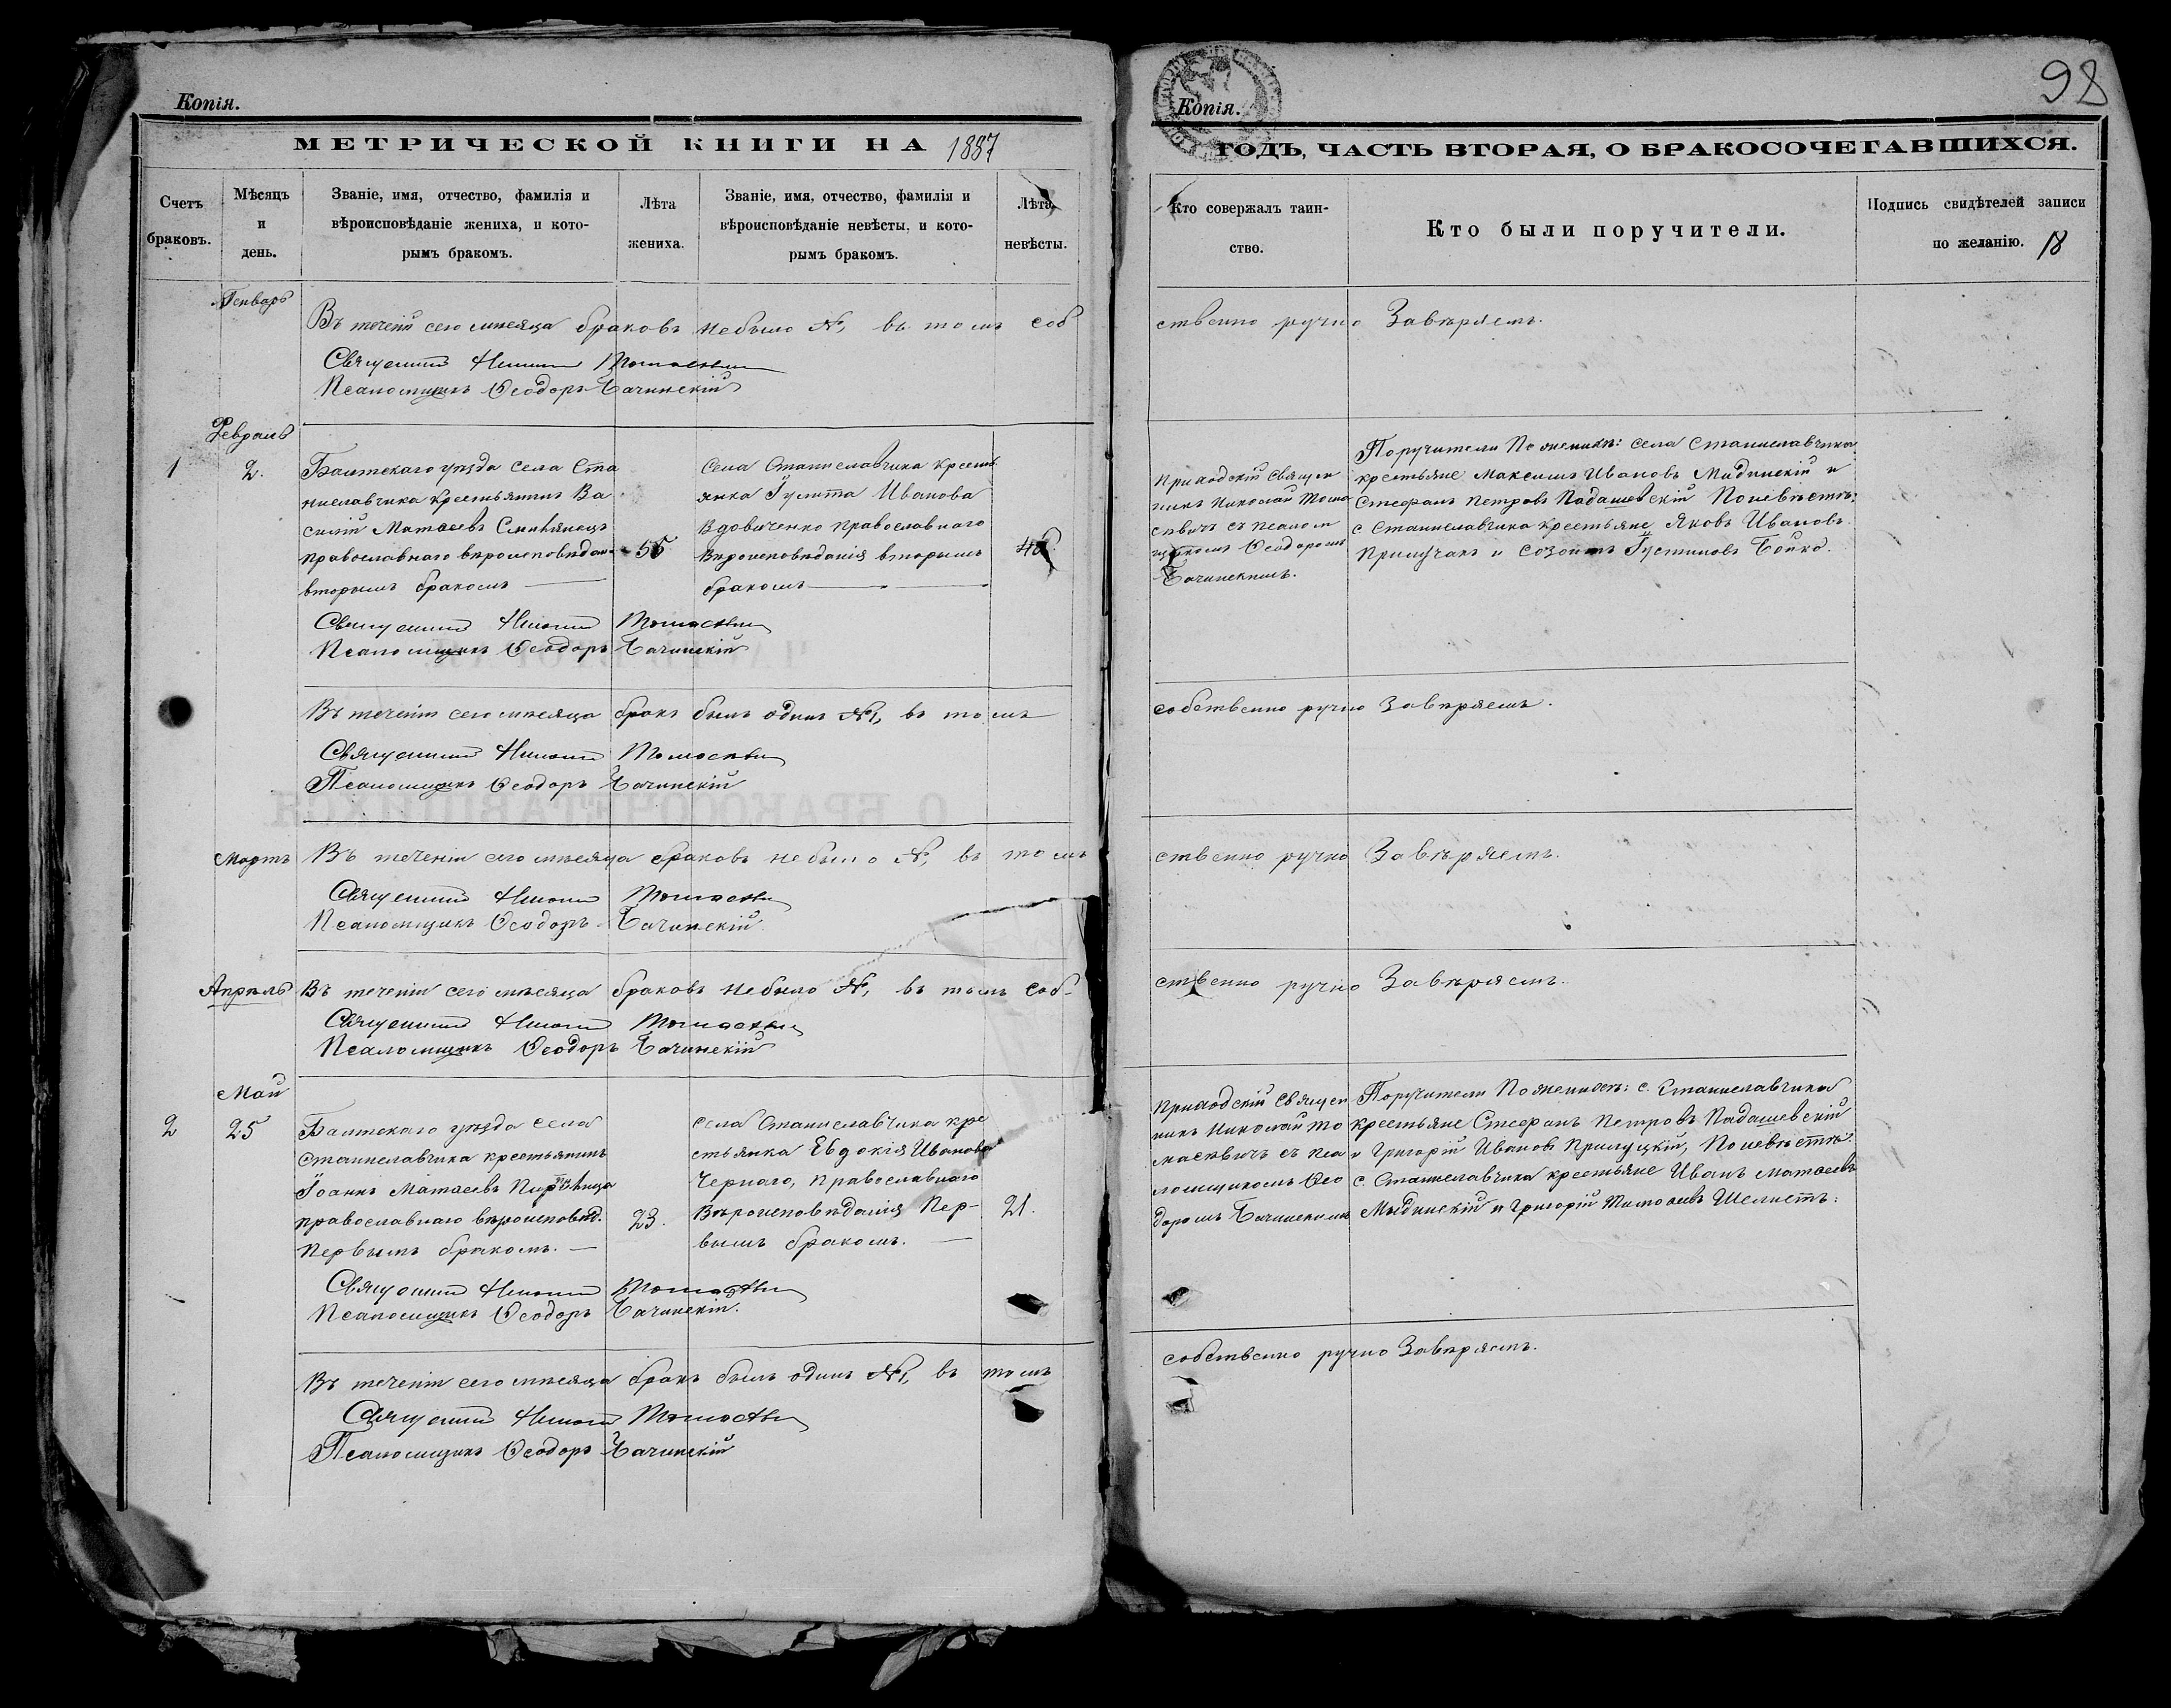 Копія.
МЕТРИЧЕСКОЙ КНИГИ НА 1887
Счетъ браковъ.
Мѣсяцъ и день.
Званіе, имя, отчество, фамилія и вѣроисповѣданіе жениха, и которымъ бракомъ.
Лѣта жениха.
Званіе, имя, отчество, фамилія и вѣроисповѣданіе невѣсты, и которымъ бракомъ.
Лѣта невѣсты.
Генварь
Въ теченіи сего мѣсяца браковъ небыло №, въ томъ соб
Псаломщикъ Ѳеодоръ Бачинскій
Февраль
1
2.
Балтскаго уѣзда села Ста
ниславчика крестьянинъ Ва
силій Матѳеевъ
православнаго вѣроисповѣдан.
вторымъ бракомъ
села Станиславчика крестъ
янка Іулита Иванова
Вдовиченко православнаго
вѣроисповѣданія вторымъ
бракомъ
Псаломщикъ Ѳеодоръ Бачинскій
Въ теченіи сего мѣсяца бракъ былъ одинъ №1, въ томъ
Псаломщикъ Ѳеодоръ Бачинскій
Мартъ
Въ теченіи сего мѣсяца браковъ небыло №, въ томъ
Псаломщикъ Ѳеодоръ Бачинскій
Апрѣль
Въ теченіи сего мѣсяца браковъ небыло №, въ томъ соб-
Псаломщикъ Ѳеодоръ Бачинскій
Май
2
25
Балтскаго уѣзда села
Станиславчика крестьянинъ
Іоаннъ Матѳеевъ
православнаго вѣроисповѣд.
первымъ бракомъ.
23.
села Станиславчика кре
стьянка Евдокія Иванова
Чернаго, православнаго
вѣроисповѣданія пер-
вымъ бракомъ.
21.
Псаломщикъ Ѳеодоръ Бачинскій.
Въ теченіи сего мѣсяца бракъ былъ одинъ №1, въ томъ
Псаломщикъ Ѳеодоръ Бачинскій
98
Копія.
ГОДЪ, ЧАСТЬ ВТОРАЯ, О БРАКОСОЧЕТАВШИХСЯ.
Кто совержалъ таинство.
Кто были поручители.
Подпись свидѣтелей записи по желанію.
18
ственно ручно Завѣряемъ.
Приходскій Священ
никъ Николай Тома
шевичъ съ псалом
щикомъ Ѳеодоромъ
Бачинскимъ.
Поручители По женихѣ: села Станиславчика
крестьяне Максимъ Ивановъ Мидинскій и
Стефанъ Петровъ Падашевскій По невѣстѣ:
с Станиславчика крестьяне Яковъ Ивановъ
и Созонтъ Іустиновъ Бойко.
собственно ручно Завѣряемъ.
ственно ручно Завѣряемъ.
ственно ручно Завѣряемъ.
Приходскій Священ
никъ Николай То
машевичъ съ пса
ломщикомъ Ѳео
доромъ Бачинскимъ
Поручители По женихѣ: с. Станиславчика
крестьяне Стефанъ Петровъ Падашевскій
и Григорій Ивановъ Прилуцкій, По невѣстѣ:
с. Станиславчика крестьяне Иванъ Матѳеевъ
Мыдинскій и Григорій Тимоѳеевъ Шелестъ:
собственно ручно Завѣряемъ.